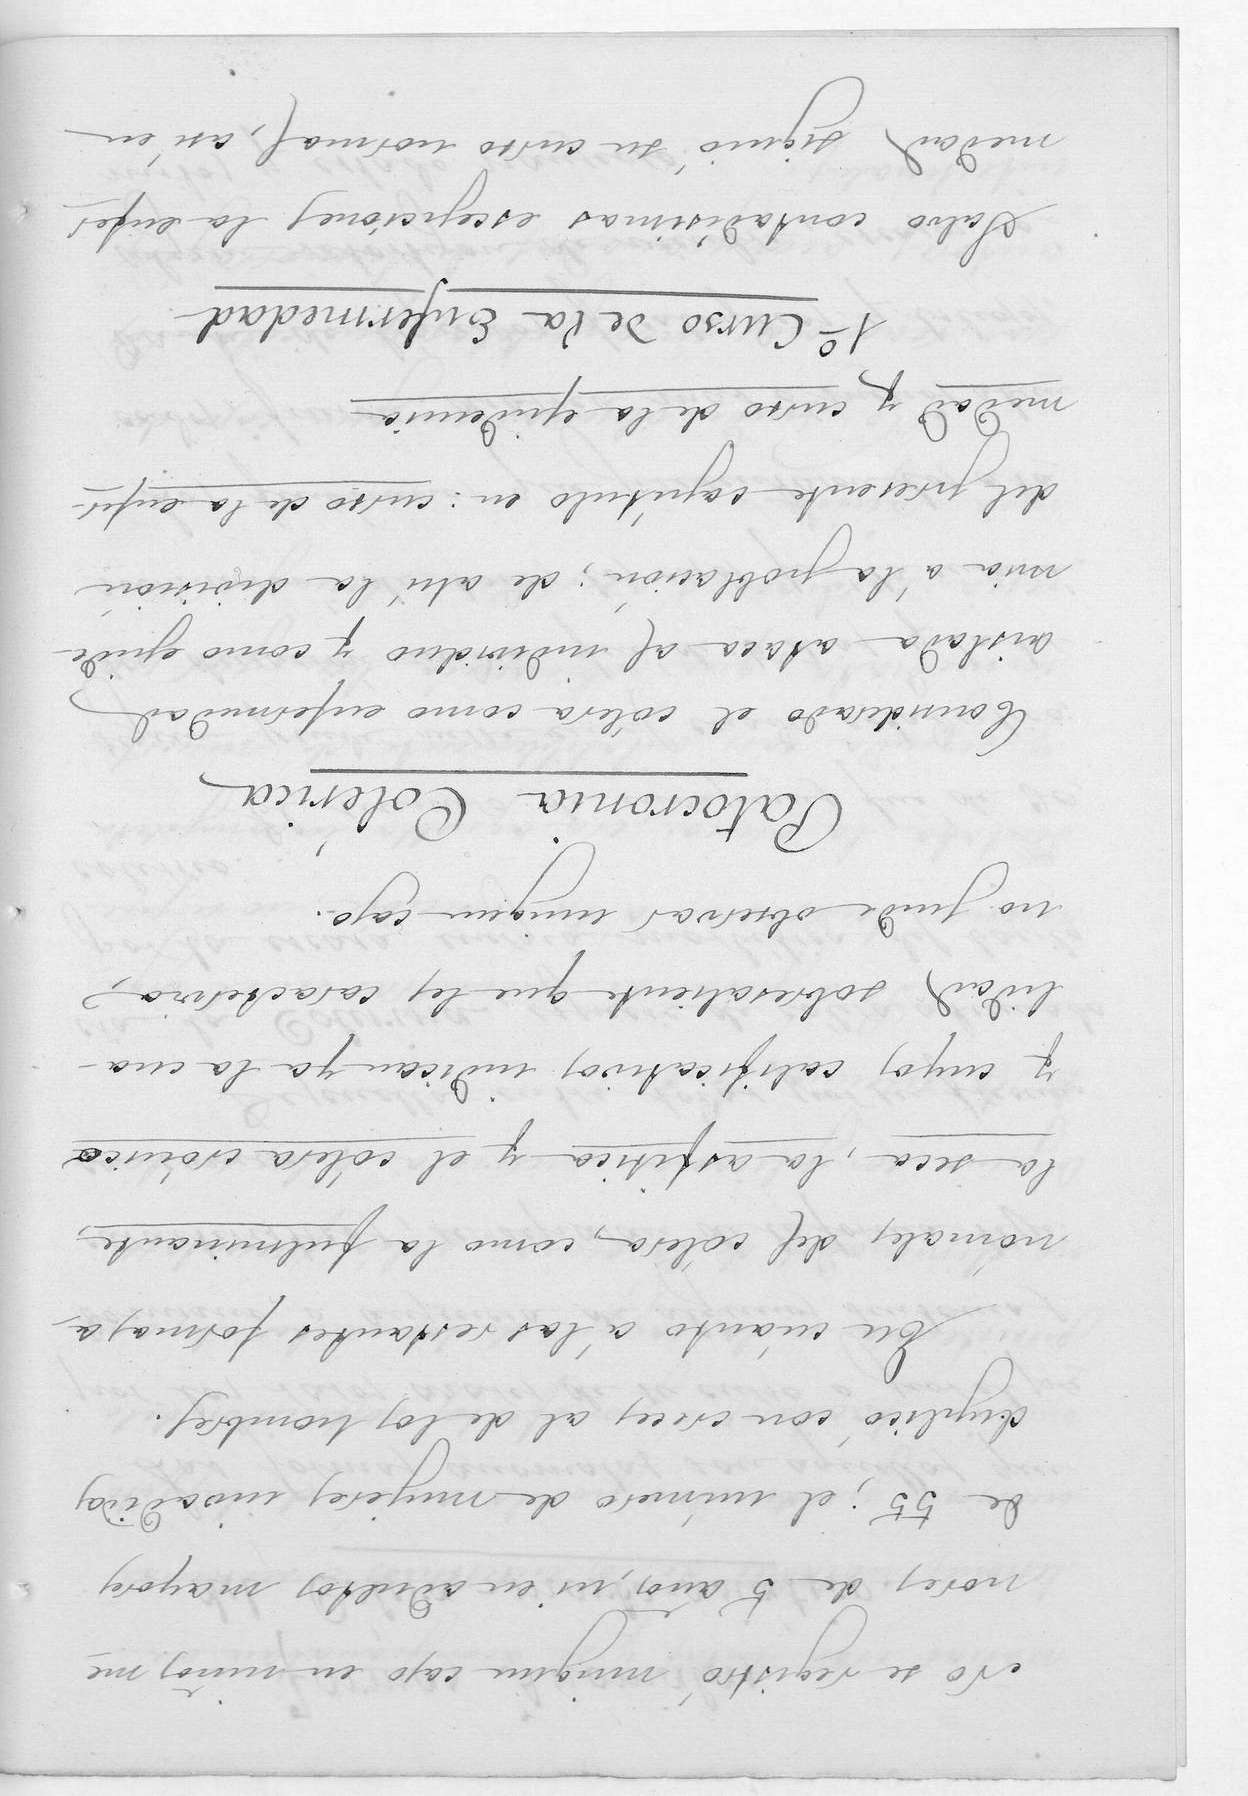 No se registró ningun caso en niños me
nores de 5 años, ni en adultos mayores
de 55; el número de mujeres invadidas
duplicó con creces al de los hombres.
En cuánto á las restantes formas a
nómales del cólera, como la fulminante,
la seca, la asfitica y el cólera crónico
y cuyos calificativos indican ya la cua-
lidad sobresaliente que les caracteriza,
no pude observar ningun caso.
Patocronia Colérica
Considerado el cólera como enfermedad
aislada ataca al individuo y como epide-
mia á la población; de ahí la división
del presente capítulo en: curso de la enfer-
medad y curso de la epidemia
1º Curso de la Enfermedad
Salvo contadísimas escepciones la enfer
medad siguió su curso normal, así en